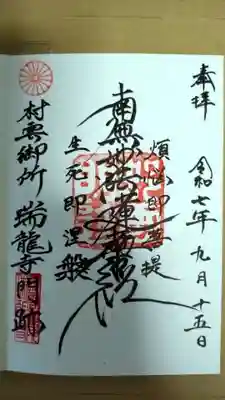 奉拝
令和七年九月十五日
煩悩即菩提
南無妙法蓮華経
生死即涅槃
村雲御所
瑞龍寺門跡